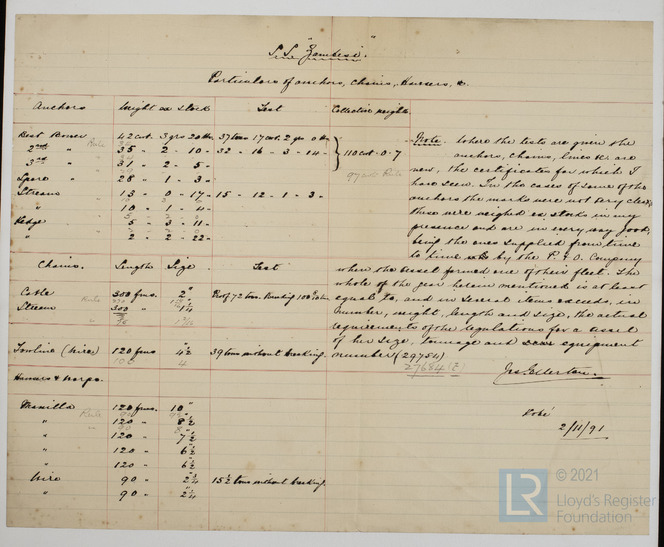 S.S. "Zambesi".
Particulars of anchors, Chains, Hawsers, &c.
Anchors Weight ex stock Test Collective weights
Best Bower 42 cwt. 3 qrs 20 lbs 37 tons 17 cwt. 2 qrs 0 lbs
2nd " Rule 35 - 2 - 10 - 32 - 16 - 3 - 14 - 110 cwt. 0. 7
3rd " 31 - 2 - 5 -
Spare " 28 - 1 - 3 - Rule
Stream 13 - 0 - 17 - 15 - 12 - 1 - 3 -
" 10 - 1 - 4 -
Kedge 5 - 3 - 11 -
" 2 - 2 - 22 -
Note. Where the tests are given the
anchors, Chains, lines &c. are
new, the certificates for which I
have seen. In the cases of some of the
anchors the marks were not very clear,
these were weighed ex stock in my
presence and are in every way good,
being the ones supplied from time
to time by the P. & O. Company
when the vessel formed one of their fleet. The
whole of the gear herein mentioned is at least
equal to, and in several items exceeds, in
number, weight, length and size, the actual
requirements of the regulations for a vessel
of her size, tonnage and equipment
number (29754)
27684 (2)
Chains. Lengths Size. Test
Cable 300 fms. 2" Proof 72 tons. Breaking 100 8/10 tons
Stream Rule 300 " 1 1/4
" 75 1 2/16
Towline (Wire) 120 fms 4 1/2 39 tons without breaking.
Hawsers & Warps.
Manilla 120 fms. 10"
" Rule 120 " 8 1/2
" 120 " 7 1/2
" 120 " 6 1/2
" 120 " 6 1/2
Wire 90 " 2 3/4 15 1/2 tons without breaking.
" 90 " 2 3/4
Kobé
2/11/91
LR
© 2021
Lloyd's Register
Foundation